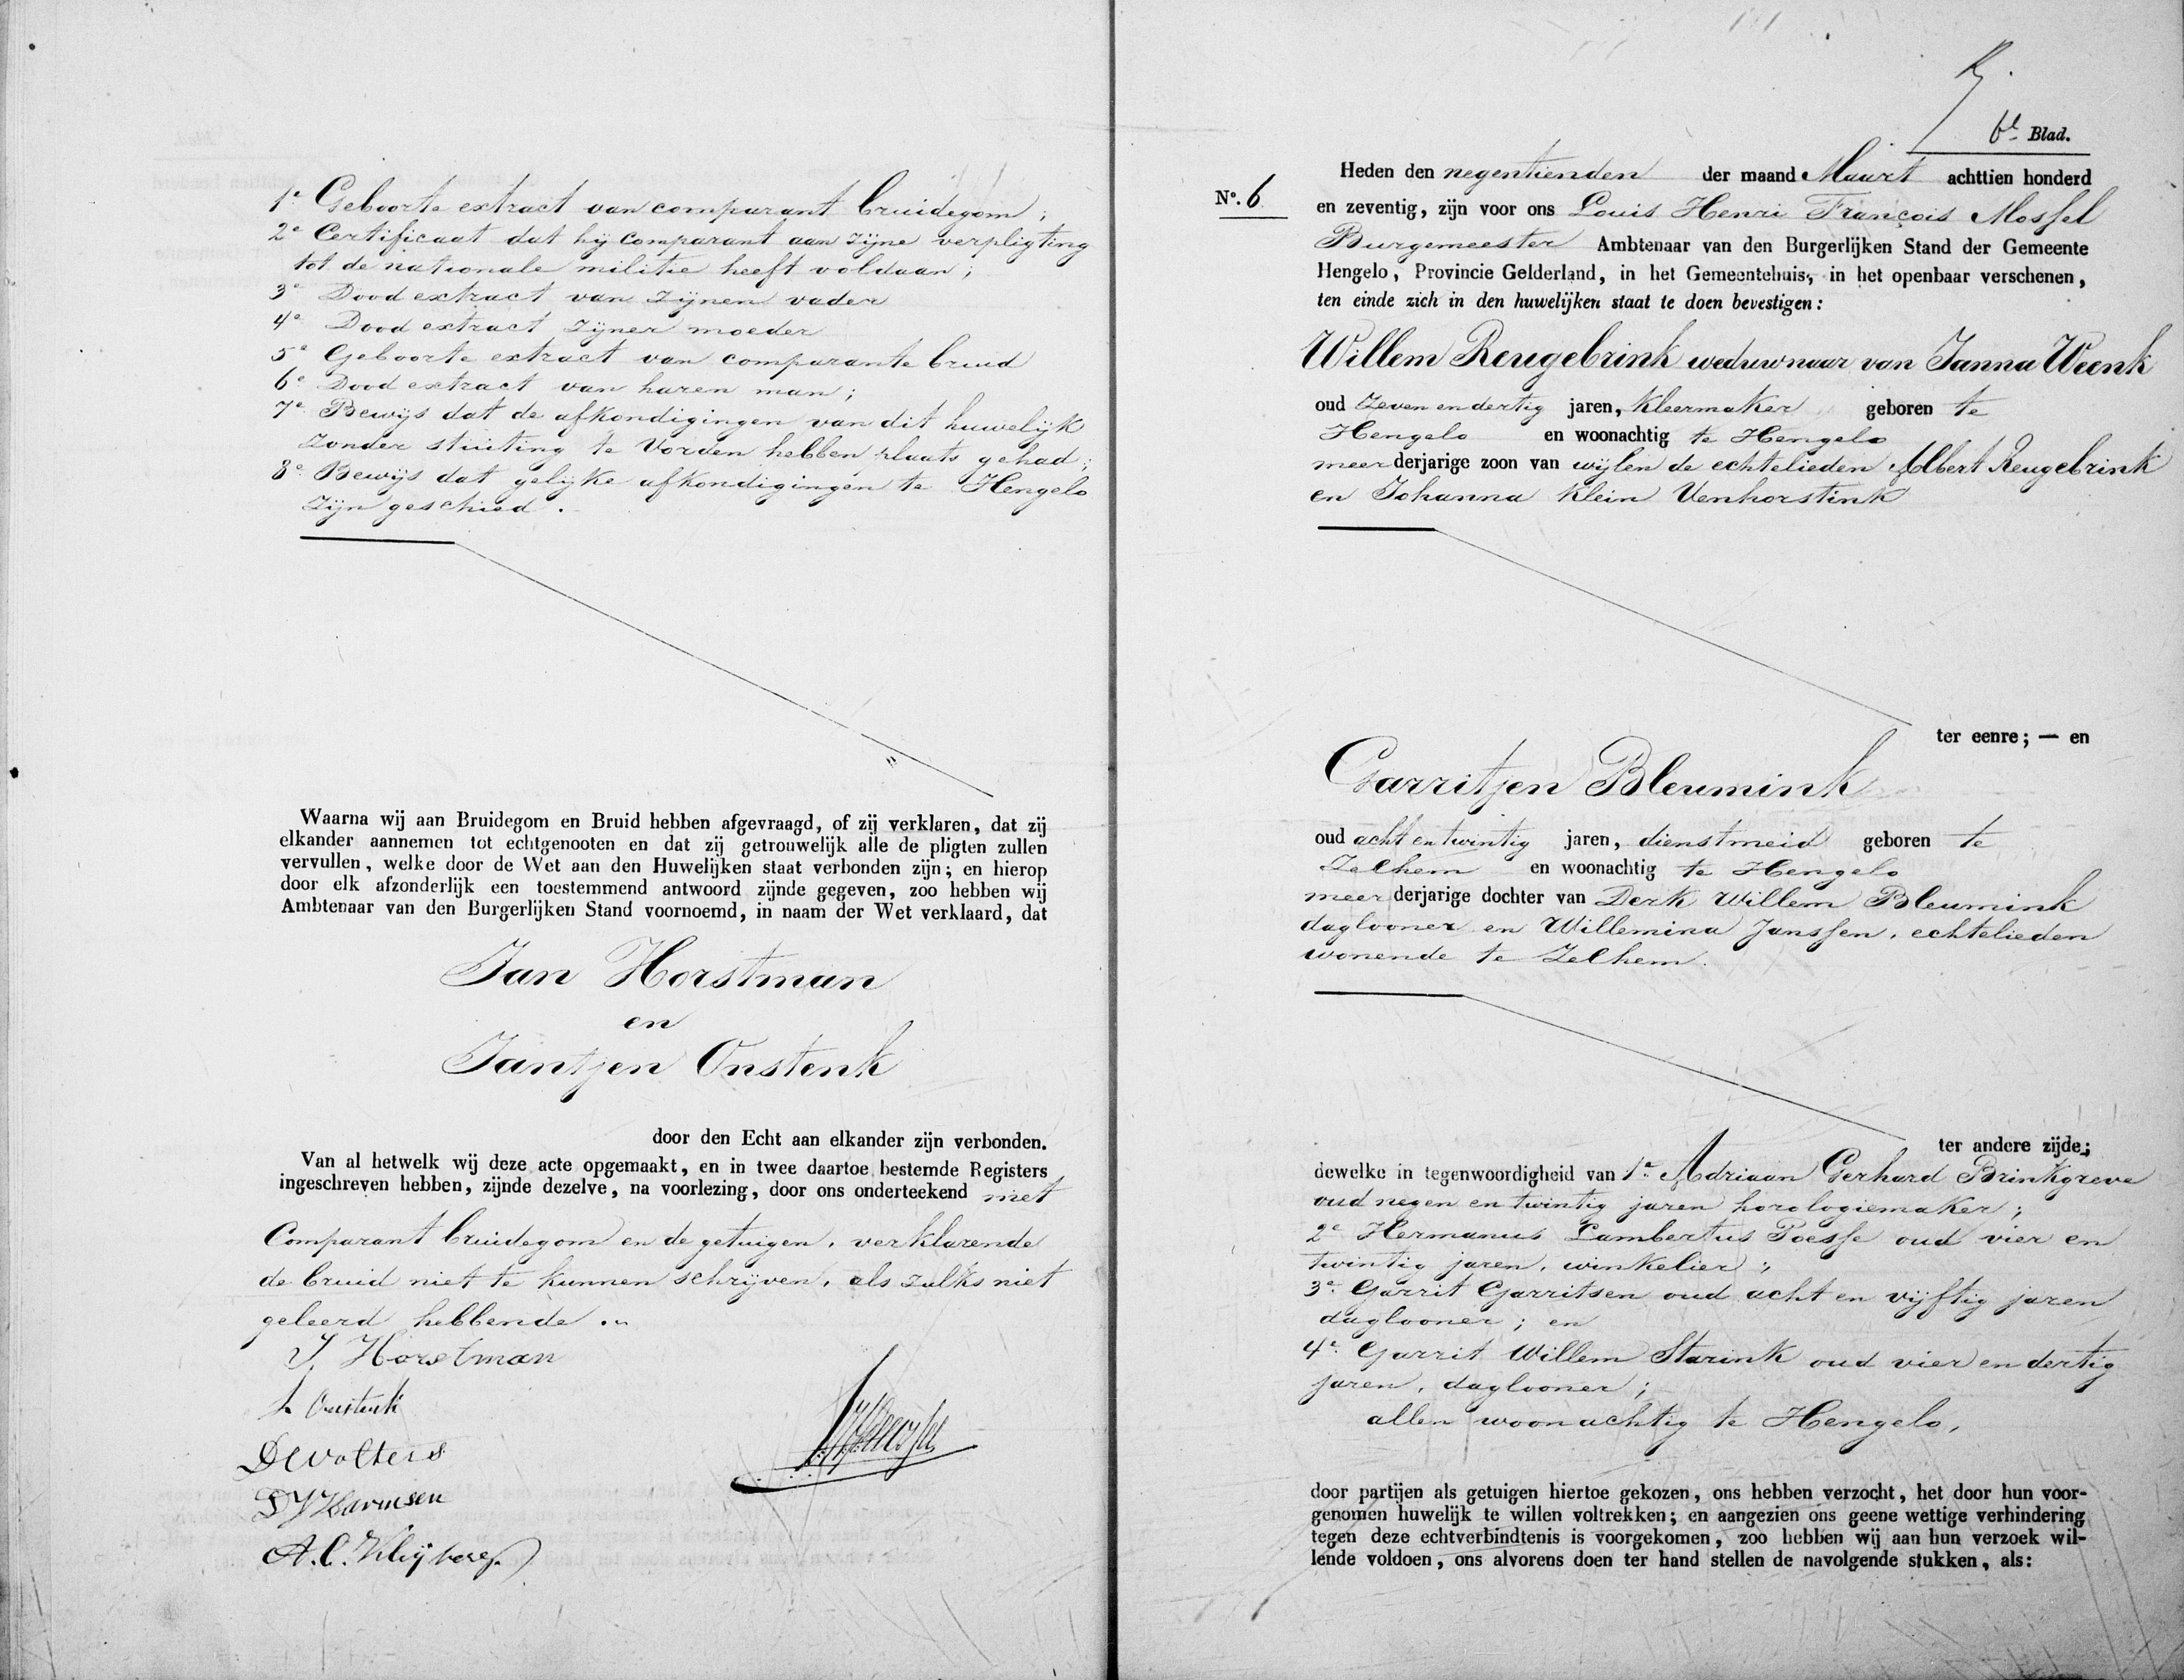 1e Geboorte extract van comparant bruidegom;
2e Certificaat dat hij comparant aan zijne verpligting
tot de nationale militie heeft voldaan;
3e Dood extract van zijnen vader
4e Dood extract zijner moeder
5e Geboorte extract van comparante bruid
6e Dood extract van haren man;
7e Bewijs dat de afkondigingen van dit huwelijk
zonder stuiting te Vorden hebben plaats gehad;
8e Bewijs dat gelijke afkondigingen te Hengelo
zijn geschied.
Waarna wij aan Bruidegom en Bruid hebben afgevraagd, of zij verklaren, dat zij
elkander aannemen tot echtgenooten en dat zij getrouwelijk alle de pligten zullen
vervullen, welke door de Wet aan den Huwelijken staat verbonden zijn; en hierop
door elk afzonderlijk een toestemmend antwoord zijnde gegeven, zoo hebben wij
Ambtenaar van den Burgerlijken Stand voornoemd, in naam der Wet verklaard, dat
Jan Horstman
en
Jantjen Onstenk
door den Echt aan elkander zijn verbonden.
Van al hetwelk wij deze acte opgemaakt, en in twee daartoe bestemde Registers
ingeschreven hebben, zijnde dezelve, na voorlezing, door ons onderteekend met
Comparant bruidegom en de getuigen, verklarende
de bruid niet te kunnen schrijven, als zulks niet
geleerd hebbende.
J. Horstman
Onstenk
D Wolters
D J Harmsen
6e Blad.
No. 6
Heden den negentienden der maand Maart achttien honderd
en zeventig, zijn voor ons Louis Henri François Mossel
Burgemeester Ambtenaar van den Burgerlijken Stand der Gemeente
Hengelo, Provincie Gelderland, in het Gemeentehuis, in het openbaar verschenen,
ten einde zich in den huwelijken staat te doen bevestigen:
Willem Reugebrink weduwnaar van Janna Weenk
oud zeven en dertig jaren, kleermaker geboren te
Hengelo en woonachtig te Hengelo
meerderjarige zoon van wijlen de echtelieden Albert Reugebrink
en Johanna Klein Venhorstink
ter eenre; — en
Garritjen Bleumink
oud acht en twintig jaren, dienstmeid geboren te
Zelhem en woonachtig te Hengelo
meerderjarige dochter van Derk Willem Bleumink
daglooner en Willemina Janssen, echtelieden
wonende te Zelhem.
ter andere zijde;
dewelke in tegenwoordigheid van 1e Adriaan Gerhard Brinkgreve
oud negen en twintig jaren horologiemaker;
2e Hermanus Lambertus Poesse oud vier en
twintig jaren, winkelier;
3e Garrit Garritsen oud acht en vijftig jaren
daglooner; en
4e Garrit Willem Starink oud vier en dertig
jaren, daglooner;
allen woonachtig te Hengelo,
door partijen als getuigen hiertoe gekozen, ons hebben verzocht, het door hun voor-
genomen huwelijk te willen voltrekken; en aangezien ons geene wettige verhindering
tegen deze echtverbindtenis is voorgekomen, zoo hebben wij aan hun verzoek wil-
lende voldoen, ons alvorens doen ter hand stellen de navolgende stukken, als: